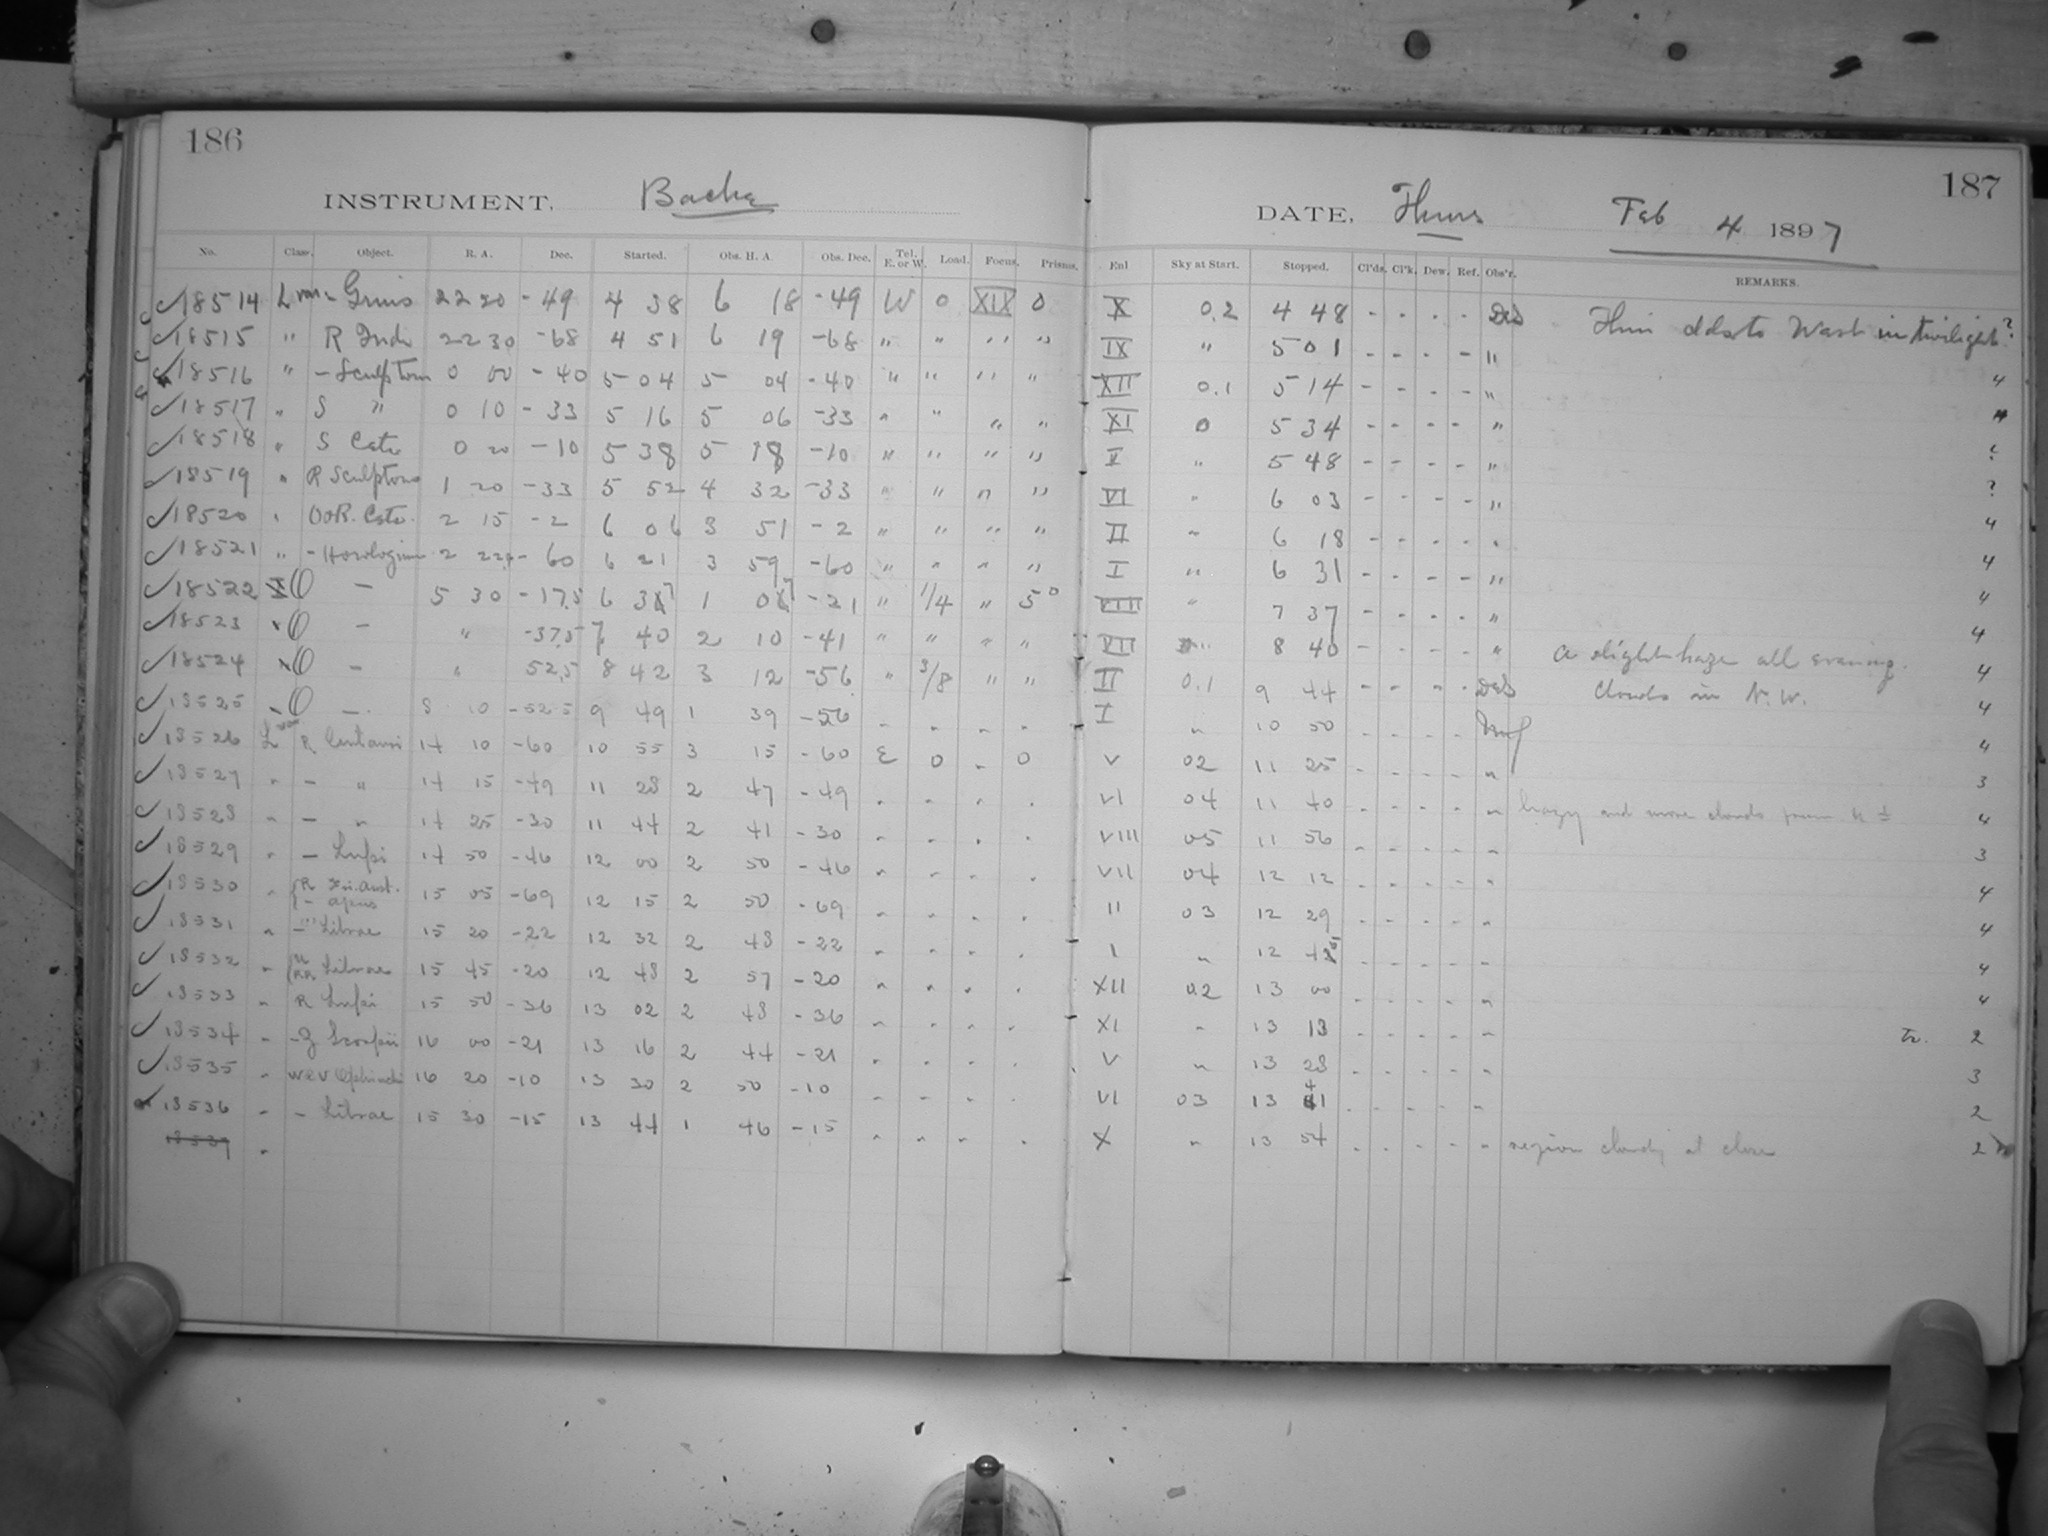 186
INSTRUMENT, Bache
No. Class. Object. R. A. Dec. Started. Obs. H. A. Obs. Dec. Tel. E. or W. Load. Focus. Prisms.
18514 L var - Gruis 22 20 -49 4 38 6 18 -49 W 0 XIX 0
18515 " R Indi 22 30 -68 4 51 6 19 -68 " " " "
18516 " - Sculptoris 0 00 -40 5 04 5 04 -40 " " " "
18517 " S " 0 10 -33 5 16 5 06 -33 " " " "
18518 " S Ceti 0 20 -10 5 38 5 18 -10 " " " "
18519 " R Sculptoris 1 20 -33 5 52 4 32 -33 " " " "
18520 " O & R. Ceti 2 15 -2 6 06 3 51 -2 " " " "
18521 " - Horologium 2 22 -60 6 21 3 59 -60 " " " "
18522 X O - 5 30 -17.5 6 37 1 07 -21 " 1/4 " 5°
18523 " O - " -37.5 7 40 2 10 -41 " " " "
18524 " O - " 52.5 8 42 3 12 -56 " 3/8 " "
18525 " O - 8 10 -52.5 9 49 1 39 -56 " " " "
18526 L var R Centauri 14 10 -60 10 55 3 15 -60 E 0 " 0
18527 " - " 14 15 -49 11 28 2 47 -49 " " " "
18528 " - " 14 25 -30 11 44 2 41 -30 " " " "
18529 " - Lupi 14 50 -46 12 00 2 50 -46 " " " "
18530 " { R Tri. Aust. - Apus 15 05 -69 12 15 2 50 -69 " " " "
18531 " - Librae 15 20 -22 12 32 2 48 -22 " " " "
18532 " Librae 15 45 -20 12 48 2 57 -20 " " " "
18533 " R Lupi 15 50 -36 13 02 2 48 -36 " " " "
18534 " - Scorpii 16 00 -21 13 16 2 44 -21 " " " "
18535 " W & V Ophiuchi 16 20 -10 13 30 2 50 -10 " " " "
18536 " - Librae 15 30 -15 13 44 1 46 -15 " " " "
18537 "
187
DATE, Thurs Feb 4 1897
Enl Sky at Start. Stopped. Cl'ds. Cl'k. Dew. Ref. Obs'r. REMARKS.
X 0.2 4 48 - - - - Thin clds to West in twilight ?
IX " 5 01 - - - - "
XII 0.1 5 14 - - - - " 4
XI 0 5 34 - - - - "
V " 5 48 - - - - " ?
VI " 6 03 - - - - " ?
II " 6 18 - - - - " 4
I " 6 31 - - - - " 4
VIII " 7 37 - - - - " 4
VII " 8 40 - - - - " A slight haze all evening. 4
II 0.1 9 44 - - - - Clouds in N. W. 4
I " 10 50 - - - - 4
V 02 11 25 - - - - " 4
VI 04 11 40 - - - - " hazy and more clouds from 3
VIII 05 11 56 - - - - " 4
VII 04 12 12 - - - - " 3
II 03 12 29 - - - - " 4
I " 12 - - - - " 4
XII 02 13 00 - - - - " 4
XI " 13 13 - - - - " 4
V " 13 28 - - - - " 2
VI 03 13 41 - - - - 3
X " 13 54 - - - - " region cloudy at close 2